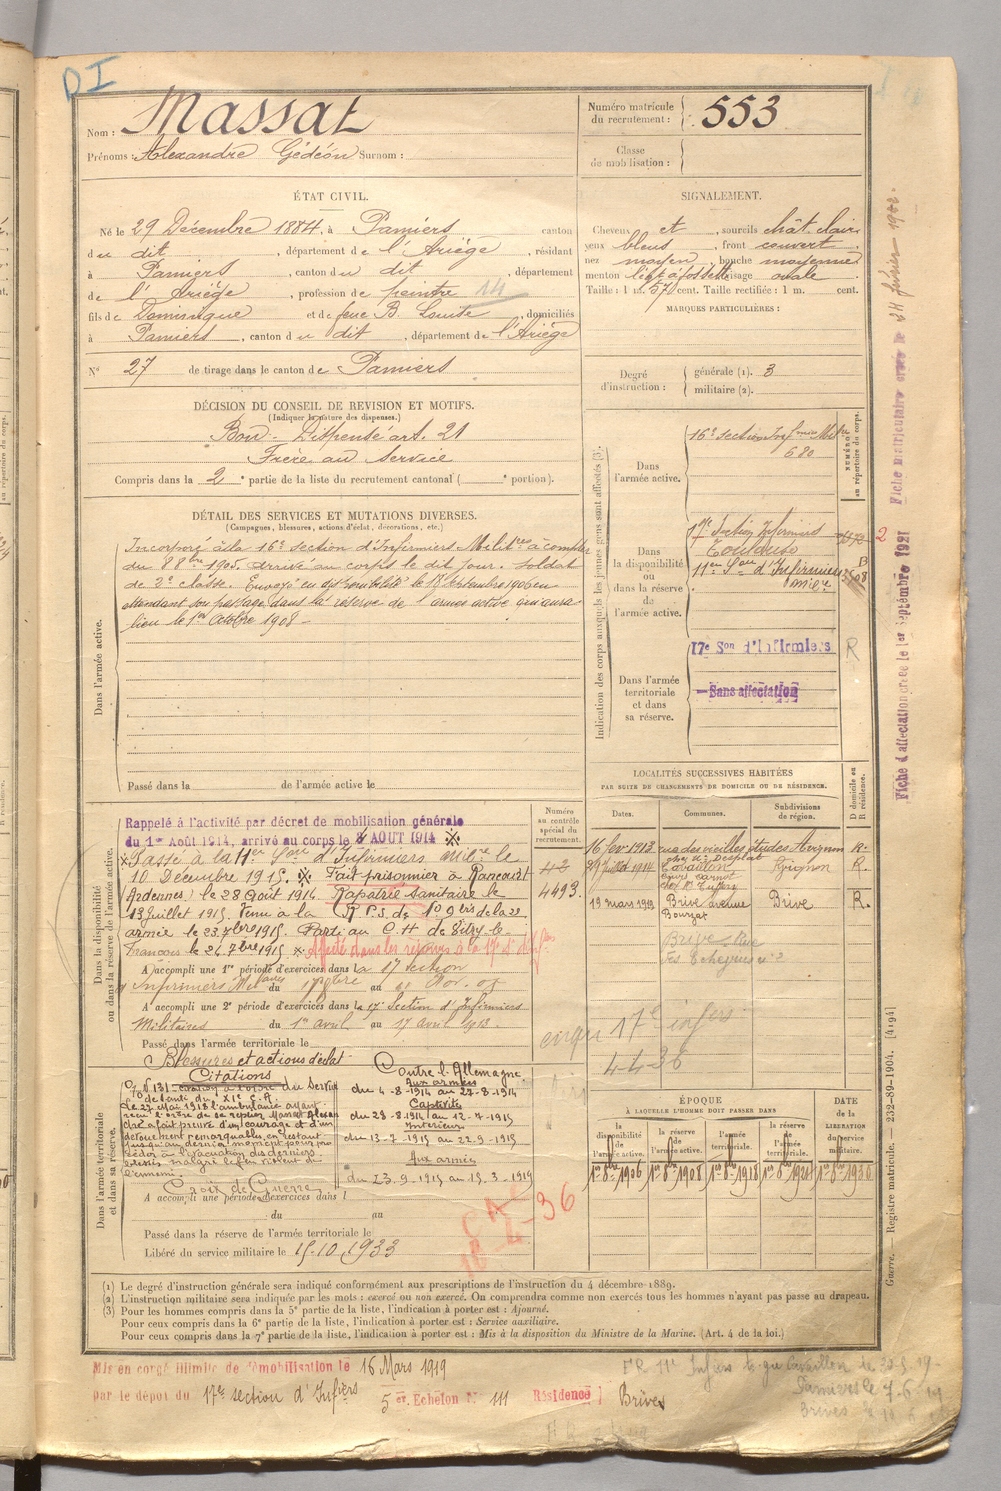 D I
Nom : Massat
Prénoms : Alexandre Gédéon Surnom :
Numéro matricule
du recrutement : 553
Classe
de mobilisation :
ÉTAT CIVIL.
Né le 29 Décembre 1884, à Pamiers canton
du dit, département de l'Ariège, résidant
à Pamiers, canton du dit, département
de l'Ariège, profession de peintre
fils de Dominique et de feue B. Louise, domiciliés
à Pamiers, canton du dit, département de l'Ariège
N° 27 de tirage dans le canton de Pamiers
SIGNALEMENT.
Cheveux et, sourcils chât clair
yeux bleus, front couvert
nez moyen, bouche moyenne
menton visage ovale
Taille : 1 m. 57 cent. Taille rectifiée : 1 m. cent.
MARQUES PARTICULIÈRES :
Degré
d'instruction :
générale (1). 3
militaire (2).
DÉCISION DU CONSEIL DE REVISION ET MOTIFS.
(Indiquer la nature des dispenses.)
Bon - Dispensé art. 21
Frère au Service
Compris dans la 2e partie de la liste du recrutement cantonal ( e portion).
DÉTAIL DES SERVICES ET MUTATIONS DIVERSES.
(Campagnes, blessures, actions d'éclat, décorations, etc.)
Dans l'armée active.
Incorporé à la 16e section d'Infirmiers Militres à compter
du 8 8bre 1905. Arrivé au corps le dit jour. Soldat
de 2e classe. Envoyé en disponibilité le 18 Septembre 1906 en
attendant son passage dans la réserve de l'armée active qui aura
lieu le 1er Octobre 1908 -
Passé dans la de l'armée active le
Indication des corps auxquels les jeunes gens sont affectés (3).
Dans
l'armée active.
16e section Infirmiers
680
NUMÉRO
au répertoire du corps.
Dans
la disponibilité
ou
dans la réserve
de
l'armée active.
17e Section Infirmiers
Toulouse
11e Son d'Infirmiers
2
Dans l'armée
territoriale
et dans
sa réserve.
17e Son d'Infirmiers R
Sans affectation
Fiche d'affectation créée le 1er Septembre 1921
Fiche matriculaire créée le 24 février
LOCALITÉS SUCCESSIVES HABITÉES
PAR SUITE DE CHANGEMENTS DE DOMICILE OU DE RÉSIDENCE.
D domicile ou
R résidence.
Dates. Communes. Subdivisions
de région.
16 fev 1913 rue des vieilles études Avignon R.
chez Mr Desplat
1914 Cavaillon R.
cours Carnot
19 mars 1919 Brive avenue Brive R.
Brive Rue
Dans la disponibilité
ou dans la réserve de l'armée active.
Rappelé à l'activité par décret de mobilisation générale
du 1er Août 1914, arrivé au corps le AOUT 1914
Passé à la 11e Son d'Infirmiers Milres le
10 Décembre 1915. Fait prisonnier à Rancourt
(Ardennes) le 28 Août 1914 Rapatrié sanitaire le
13 Juillet 1915. Venu à la R.P.S. de
armée le 23 7bre 1915. Parti au C.H de Vitry-le-
François le 24 7bre 1915
Affecté dans les réserves à la 17e
A accompli une 1re période d'exercices dans la 17 Section
Infirmiers du au
A accompli une 2e période d'exercices dans la 17e Section d'Infirmiers
Militaires du 1er avril au 17 avril 1913.
Passé dans l'armée territoriale le
Numéro
au contrôle
spécial du
recrutement.
42
4493.
17e infirs
4-4-36
Dans l'armée territoriale
et dans sa réserve.
Blessures et actions d'éclat
Citations
Le 27 Mai 1918 l'ambulance ayant
reçu l'ordre de se replier Massat Alexan
dre a fait preuve d'un courage et d'un
dévouement remarquables en restant
jusqu'au dernier moment pour pro
céder à l'évacuation des derniers
blessés malgré le feu violent de
l'ennemi.
Croix de Guerre
Contre l'Allemagne
Aux armées
du 4-8-1914 au 27-8-1914
Captivité
du 28-8-1914 au 12-7-1915
Intérieur
du 13-7-1915 au 22-9-1915
Aux armées
du 23-9-1915 au 15-3-1919
A accompli une période d'exercices dans l
du au
Passé dans la réserve de l'armée territoriale le
Libéré du service militaire le 15.10.1933
ÉPOQUE
À LAQUELLE L'HOMME DOIT PASSER DANS
la
disponibilité
de
l'armée active.
la
réserve de
l'armée active.
l'armée
territoriale.
la réserve
de
l'armée
territoriale.
DATE
de la
LIBÉRATION
du service
militaire.
1er 8bre 1906 1er 8bre 1908 1er 8bre 1918 1er 8bre 1924 1er 8bre 1930
Guerre. — Registre matricule. — 232-89-1904. [4194]
(1) Le degré d'instruction générale sera indiqué conformément aux prescriptions de l'instruction du 4 décembre 1889.
(2) L'instruction militaire sera indiquée par les mots : exercé ou non exercé. On comprendra comme non exercés tous les hommes n'ayant pas passé au drapeau.
(3) Pour les hommes compris dans la 5e partie de la liste, l'indication à porter est : Ajourné.
Pour ceux compris dans la 6e partie de la liste, l'indication à porter est : Service auxiliaire.
Pour ceux compris dans la 7e partie de la liste, l'indication à porter est : Mis à la disposition du Ministre de la Marine. (Art. 4 de la loi.)
Mis en congé illimité de démobilisation le 16 Mars 1919
par le dépôt du 17e section d'Infirs 5 er. Echelon N° 111 Résidence Brives
Pamiers le 7-6-19
Brives